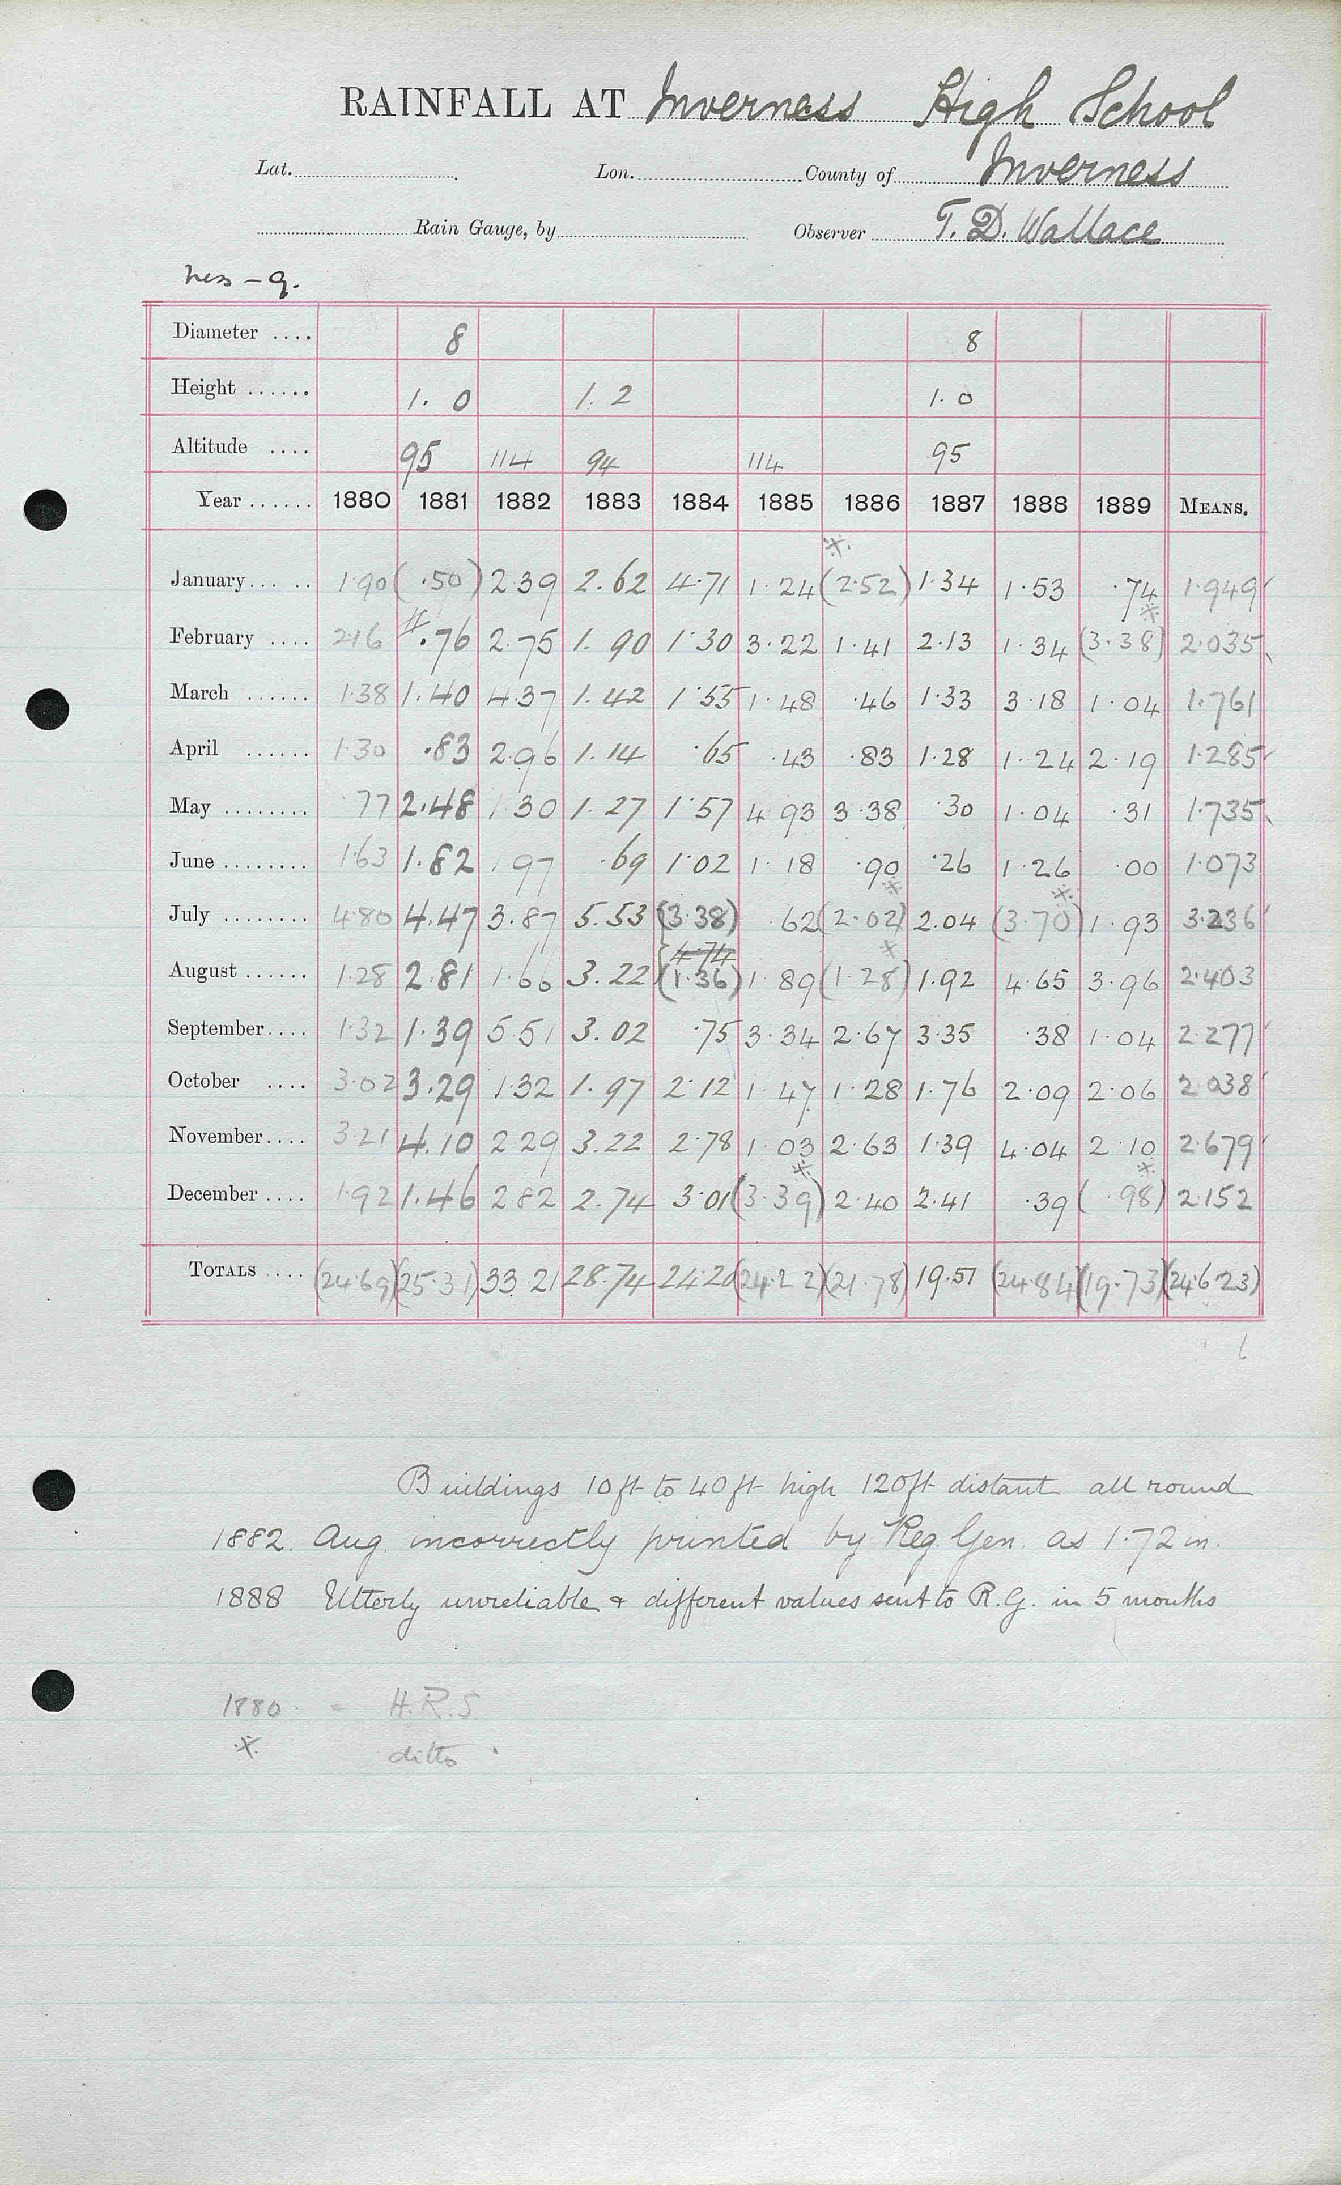 RAINFALL AT Inverness High School
Lat. Lon. County of Inverness
Rain Gauge, by Observer T. D. Wallace
Ness – 9.
Diameter .... 8 8
Height ...... 1. 0 1. 2 1. 0
Altitude .... 95 114 94 114 95
Year ...... 1880 1881 1882 1883 1884 1885 1886 1887 1888 1889 MEANS.
*
January... .. 1.90 ( .50) 2.39 2.62 4.71 1.24 (2.52) 1.34 1.53 .74 1.949
*
February .... 2.16 .76 2.75 1.90 1.30 3.22 1.41 2.13 1.34 (3.38) 2.035
March ...... 1.38 1.40 4.37 1.42 1.55 1.48 .46 1.33 3.18 1.04 1.761
April ...... 1.30 .83 2.96 1.14 .65 .43 .83 1.28 1.24 2.19 1.285
May ........ .77 2.48 1.30 1.27 1.57 4.93 3.38 .30 1.04 .31 1.735
June ........ 1.63 1.82 1.97 .69 1.02 1.18 .90 .26 1.26 .00 1.073
* *
July ........ 4.80 4.47 3.87 5.53 (3.38) .62 (2.02) 2.04 (3.70) 1.93 3.236
4.74 *
August ...... 1.28 2.81 1.66 3.22 (1.36) 1.89 (1.28) 1.92 4.65 3.96 2.403
September.... 1.32 1.39 5.51 3.02 .75 3.34 2.67 3.35 .38 1.04 2.277
October .... 3.02 3.29 1.32 1.97 2.12 1.47 1.28 1.76 2.09 2.06 2.038
November.... 3.21 4.10 2.29 3.22 2.78 1.03 2.63 1.39 4.04 2.10 2.679
* *
December .... 1.92 1.46 2.82 2.74 3.01 (3.39) 2.40 2.41 .39 ( .98) 2.152
TOTALS .... (24.69) (25.31) 33.21 28.74 24.20 (24.22) (21.78) 19.51 (24.84) (19.73) (24.623)
Buildings 10ft to 40ft high 120ft distant all round
1882. Aug. incorrectly printed by Reg. Gen. as 1.72 in.
1888 Utterly unreliable & different values sent to R.G. in 5 months
1880 = H.R.S.
* ditto